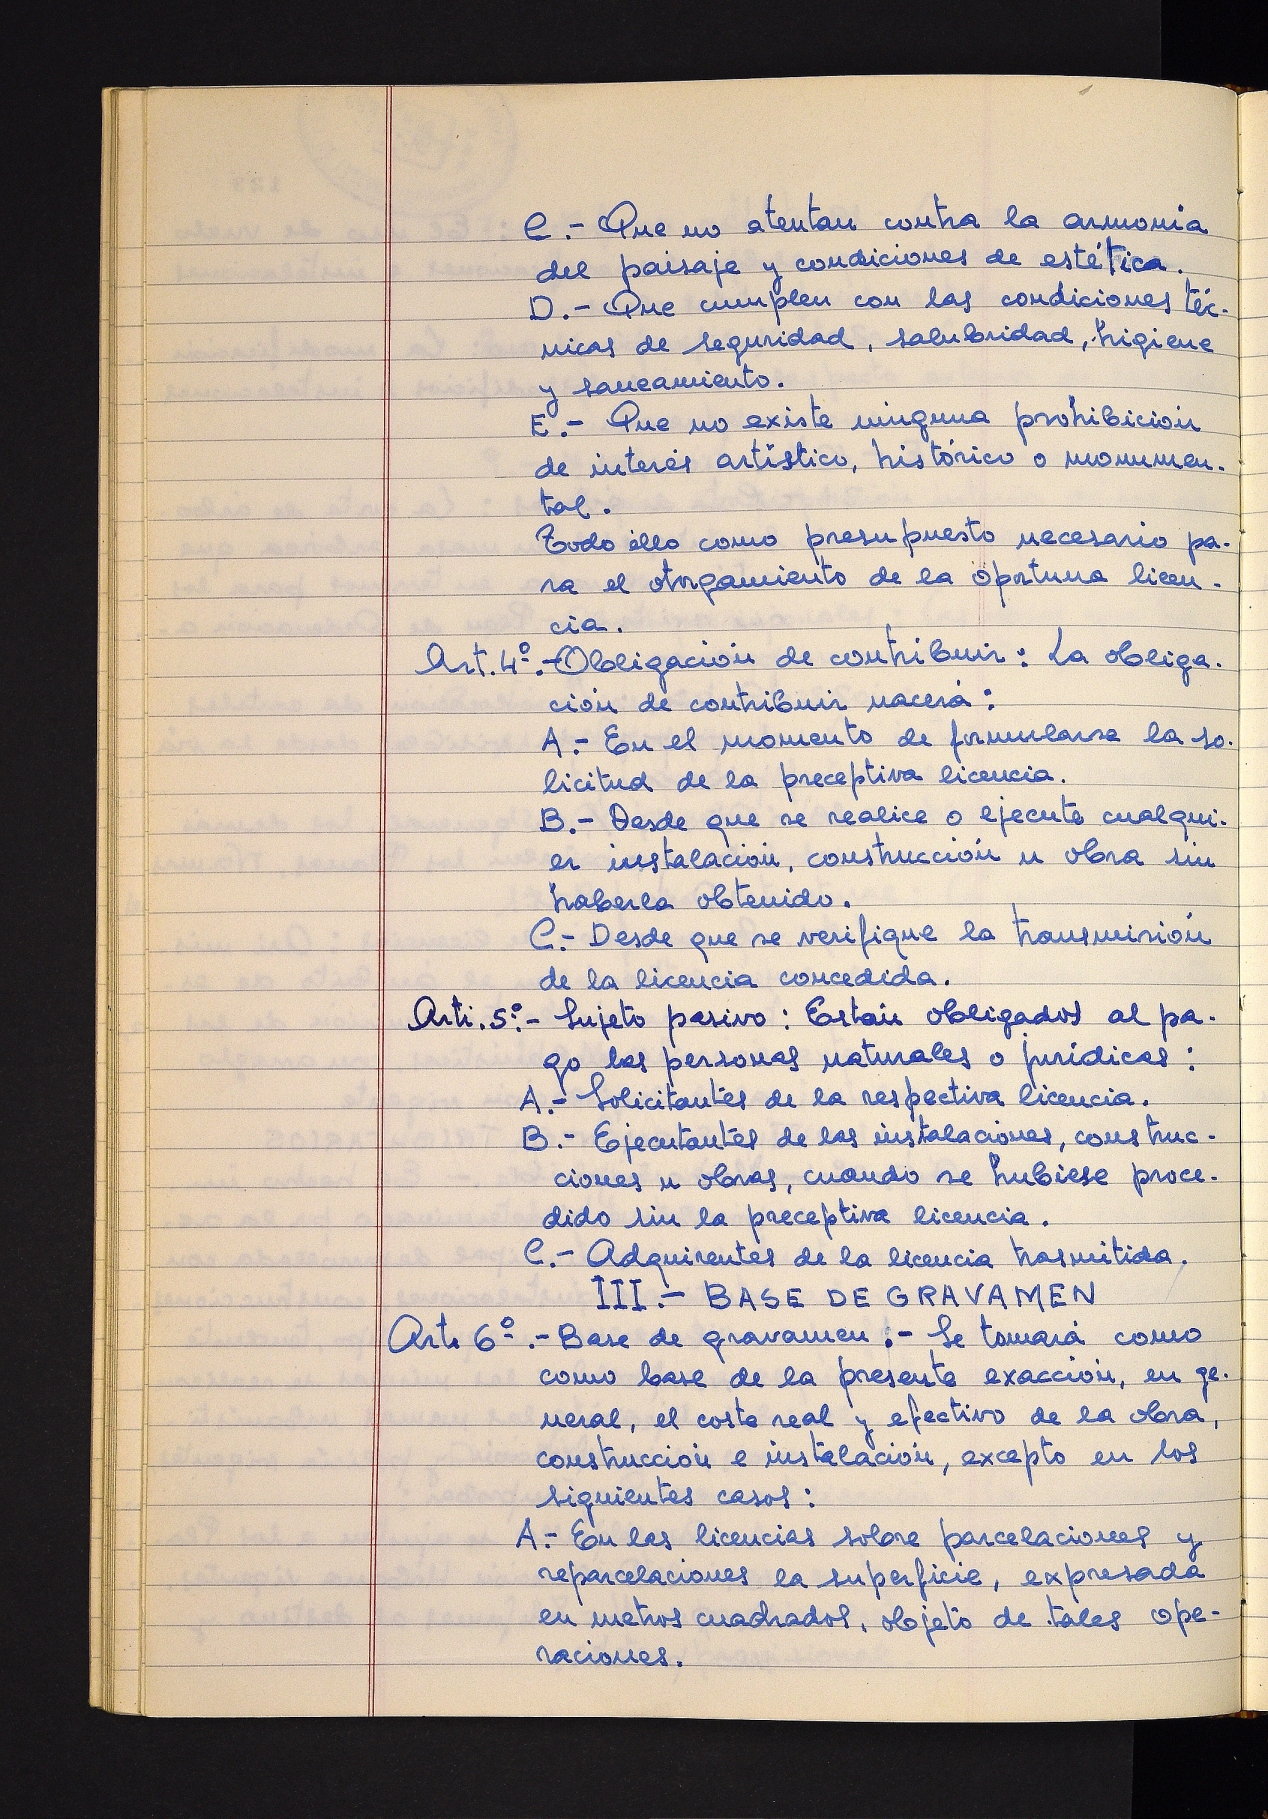 C.- Que no atentan contra la armonía
del paisaje y condiciones de estética.
D.- Que cumplen con las condiciones téc-
nicas de seguridad, salubridad, higiene
y saneamiento.
E.- Que no existe ninguna prohibición
de interés artístico, histórico o monumen-
tal.
Todo ello como presupuesto necesario pa-
ra el otorgamiento de la oportuna licen-
cia.
Art. 4º.- Obligación de contribuir: La obliga-
ción de contribuir nacerá:
A.- En el momento de formularse la so-
licitud de la preceptiva licencia.
B.- Desde que se realice o ejecute cualqui-
er instalación, construcción u obra sin
haberla obtenido.
C.- Desde que se verifique la transmisión
de la licencia concedida.
Arti. 5º.- Sujeto pasivo: Están obligados al pa-
go las personas naturales o jurídicas:
A.- Solicitantes de la respectiva licencia.
B.- Ejecutantes de las instalaciones, construc-
ciones u obras, cuando se hubiese proce-
dido sin la preceptiva licencia.
C.- Adquirentes de la licencia trasmitida.
III.- BASE DE GRAVAMEN
Art. 6º.- Base de gravamen:- Se tomará como
como base de la presente exacción, en ge-
neral, el costo real y efectivo de la obra,
construcción e instalación, excepto en los
siguientes casos:
A.- En las licencias sobre parcelaciones y
reparcelaciones la superficie, expresada
en metros cuadrados, objeto de tales ope-
raciones.